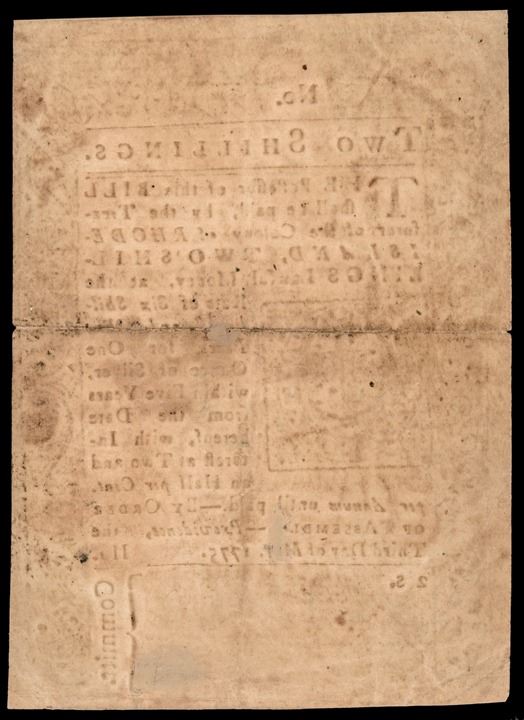 No.
TWO SHILLINGS.
THE Possessor of this BILL
shall be paid, by the Trea-
surer of the Colony of RHODE
ISLAND, TWO SHIL-
LINGS Lawful Money, at the
Rate of Six Shil-
for One
Ounce of Silver,
within Five Years
from the Date
hereof, with In-
terest at Two and
an Half per Cent.
per Annum until paid.—By ORDER
OF ASSEMBLY.—Providence, the
Third Day of MAY, 1775.
2 S.
Committe.